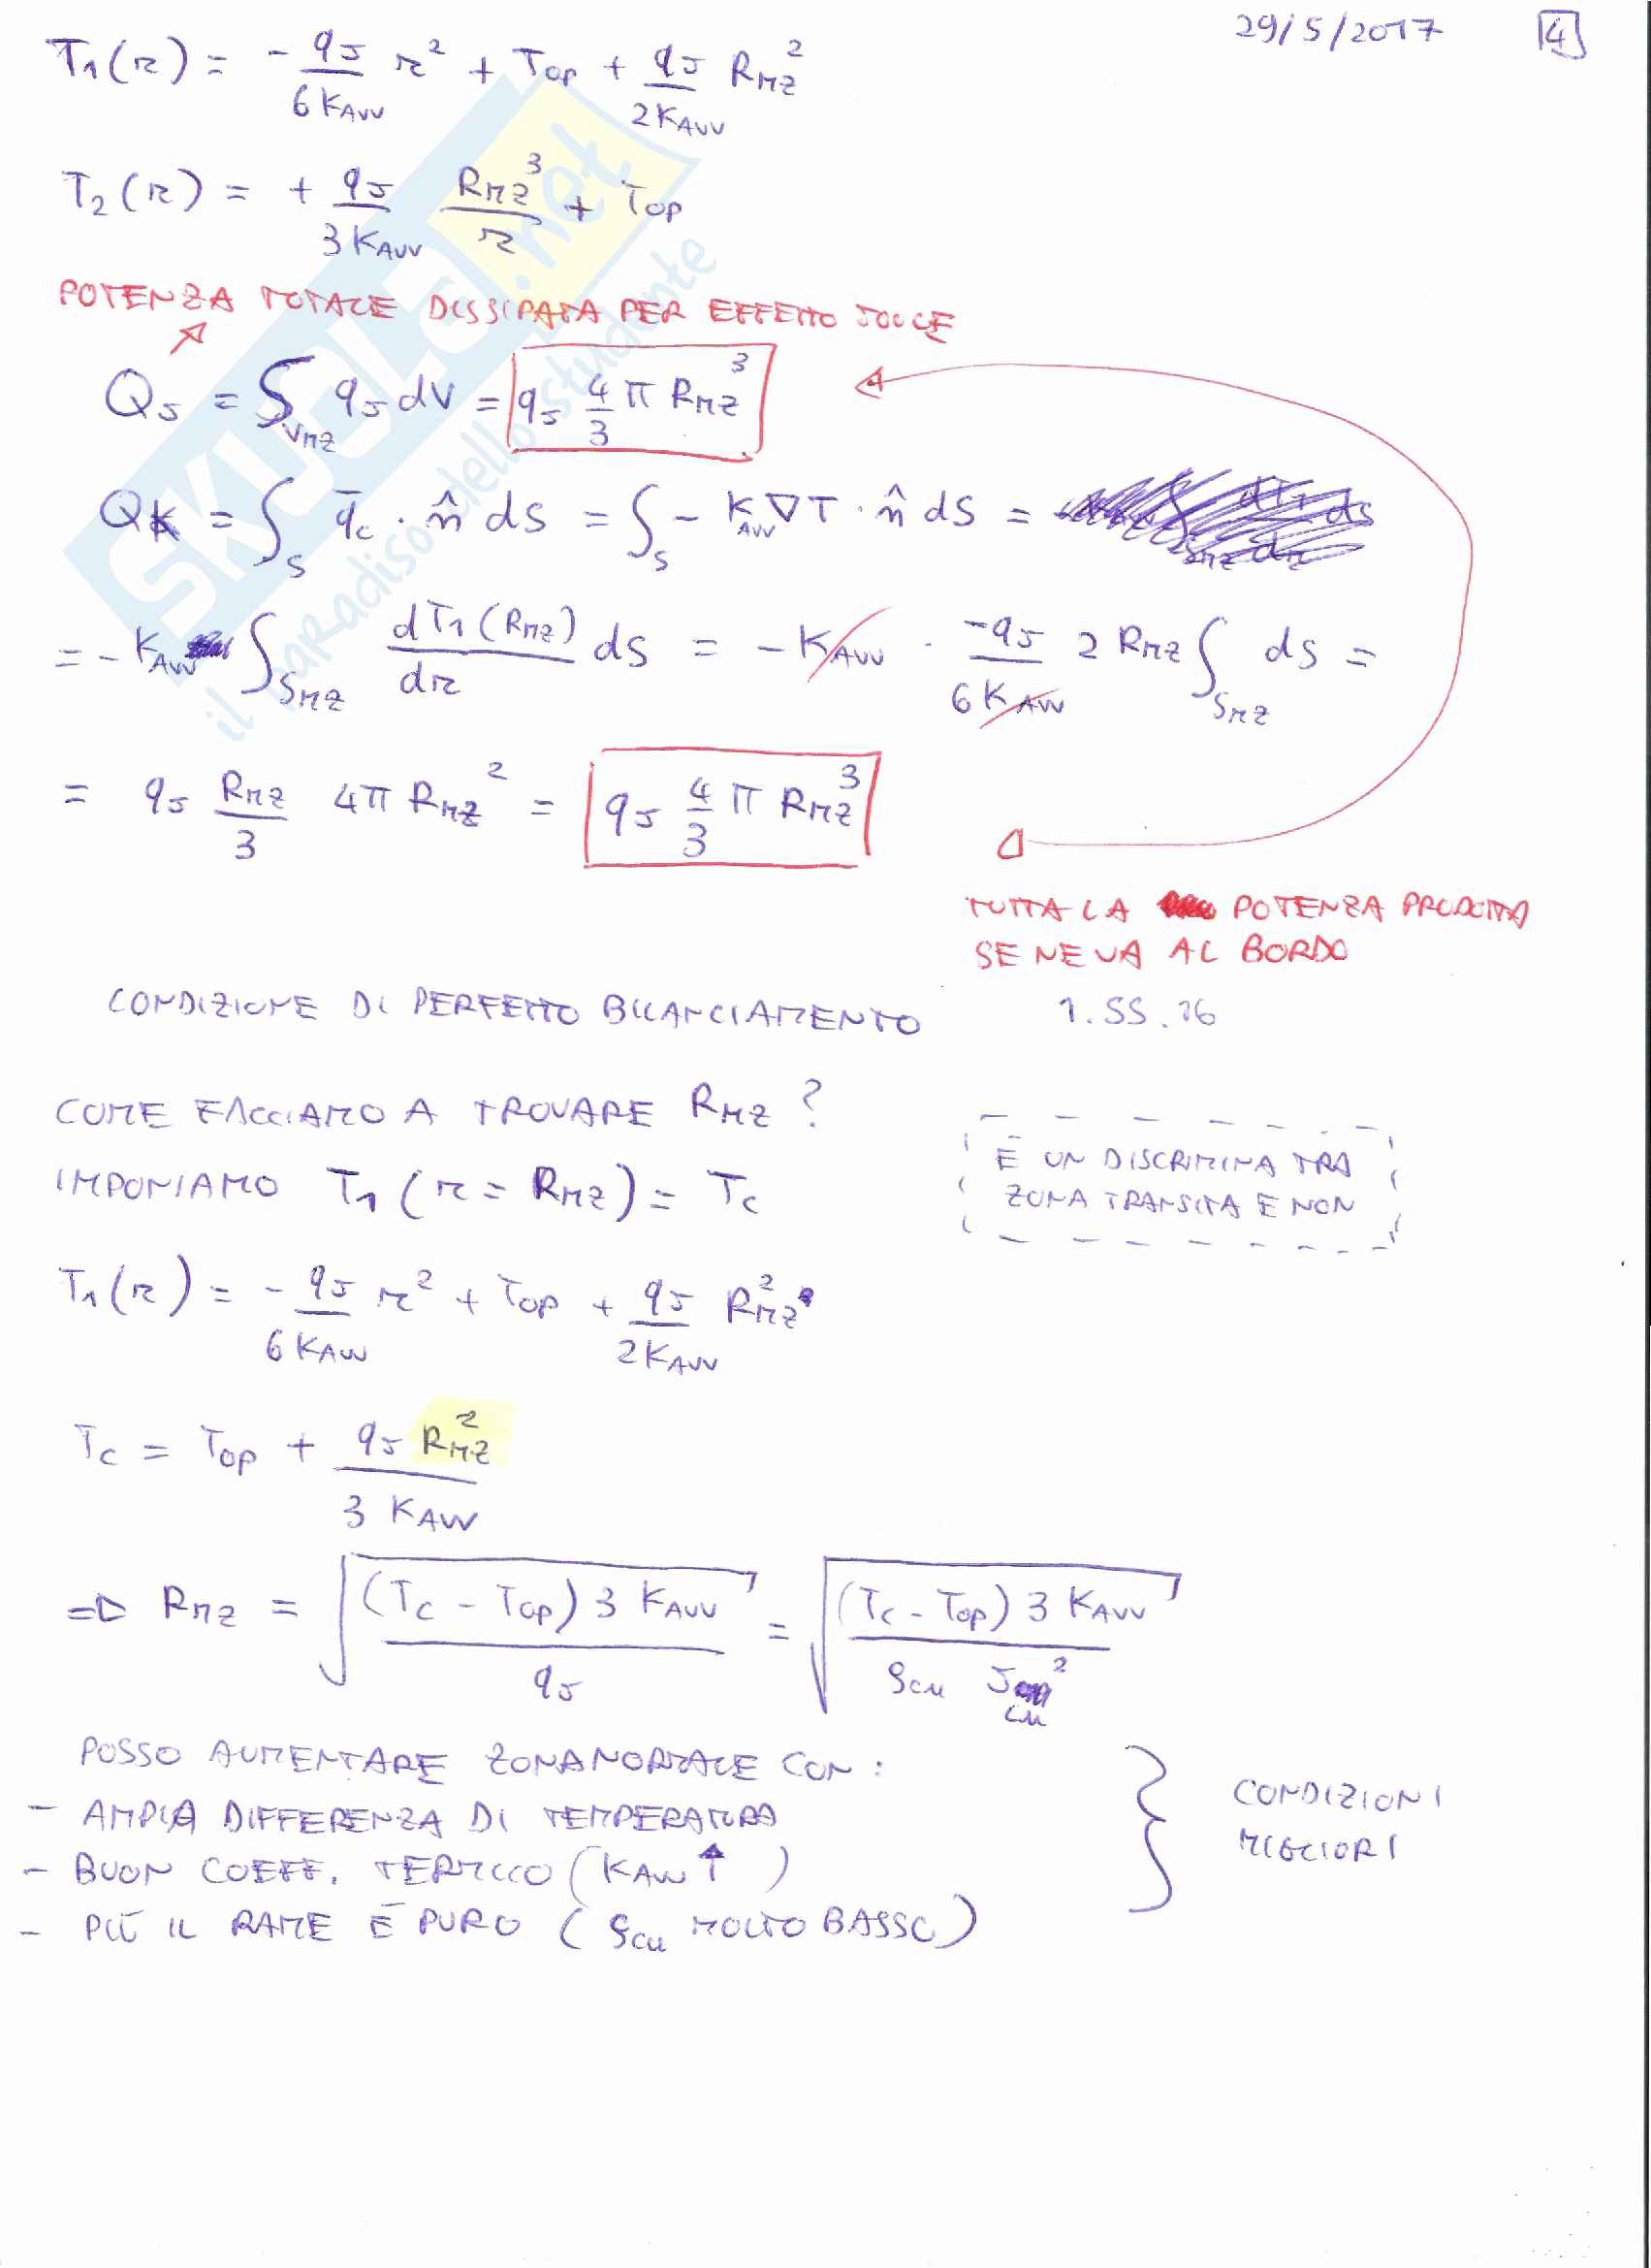 29/5/2017 4
T₁(r) = - qJ/6KAVV r² + Top + qJ/2KAVV RMZ²
T₂(r) = + qJ/3KAVV RMZ³/r + Top
POTENZA TOTALE DISSIPATA PER EFFETTO JOULE
QJ = ∫VMZ qJ dV = qJ 4/3 π RMZ³
QK = ∫S q̄c · n̂ dS = ∫S - KAVV ∇T · n̂ dS =
= - KAVV ∫SMZ dT₁(RMZ)/dr dS = - KAVV · -qJ/6KAVV 2 RMZ ∫SMZ dS =
= qJ RMZ/3 4π RMZ² = qJ 4/3 π RMZ³
TUTTA LA POTENZA PRODOTTA
SE NE VA AL BORDO
CONDIZIONE DI PERFETTO BILANCIAMENTO 1.SS.16
COME FACCIAMO A TROVARE RMZ ?
IMPONIAMO T₁ (r = RMZ) = Tc
È UN DISCRIMINA TRA
ZONA TRANSITA E NON
T₁(r) = - qJ/6KAVV r² + Top + qJ/2KAVV RMZ²
Tc = Top + qJ RMZ²/3 KAVV
=> RMZ = √((Tc - Top) 3 KAVV / qJ) = √((Tc - Top) 3 KAVV / ρcu Jcu²)
POSSO AUMENTARE ZONA NORMALE CON :
- AMPIA DIFFERENZA DI TEMPERATURA
- BUON COEFF. TERMICO (KAVV ↑)
- PIÙ IL RAME È PURO (ρcu MOLTO BASSO)
CONDIZIONI
MIGLIORI
SKUOLA.net
il paradiso dello studente